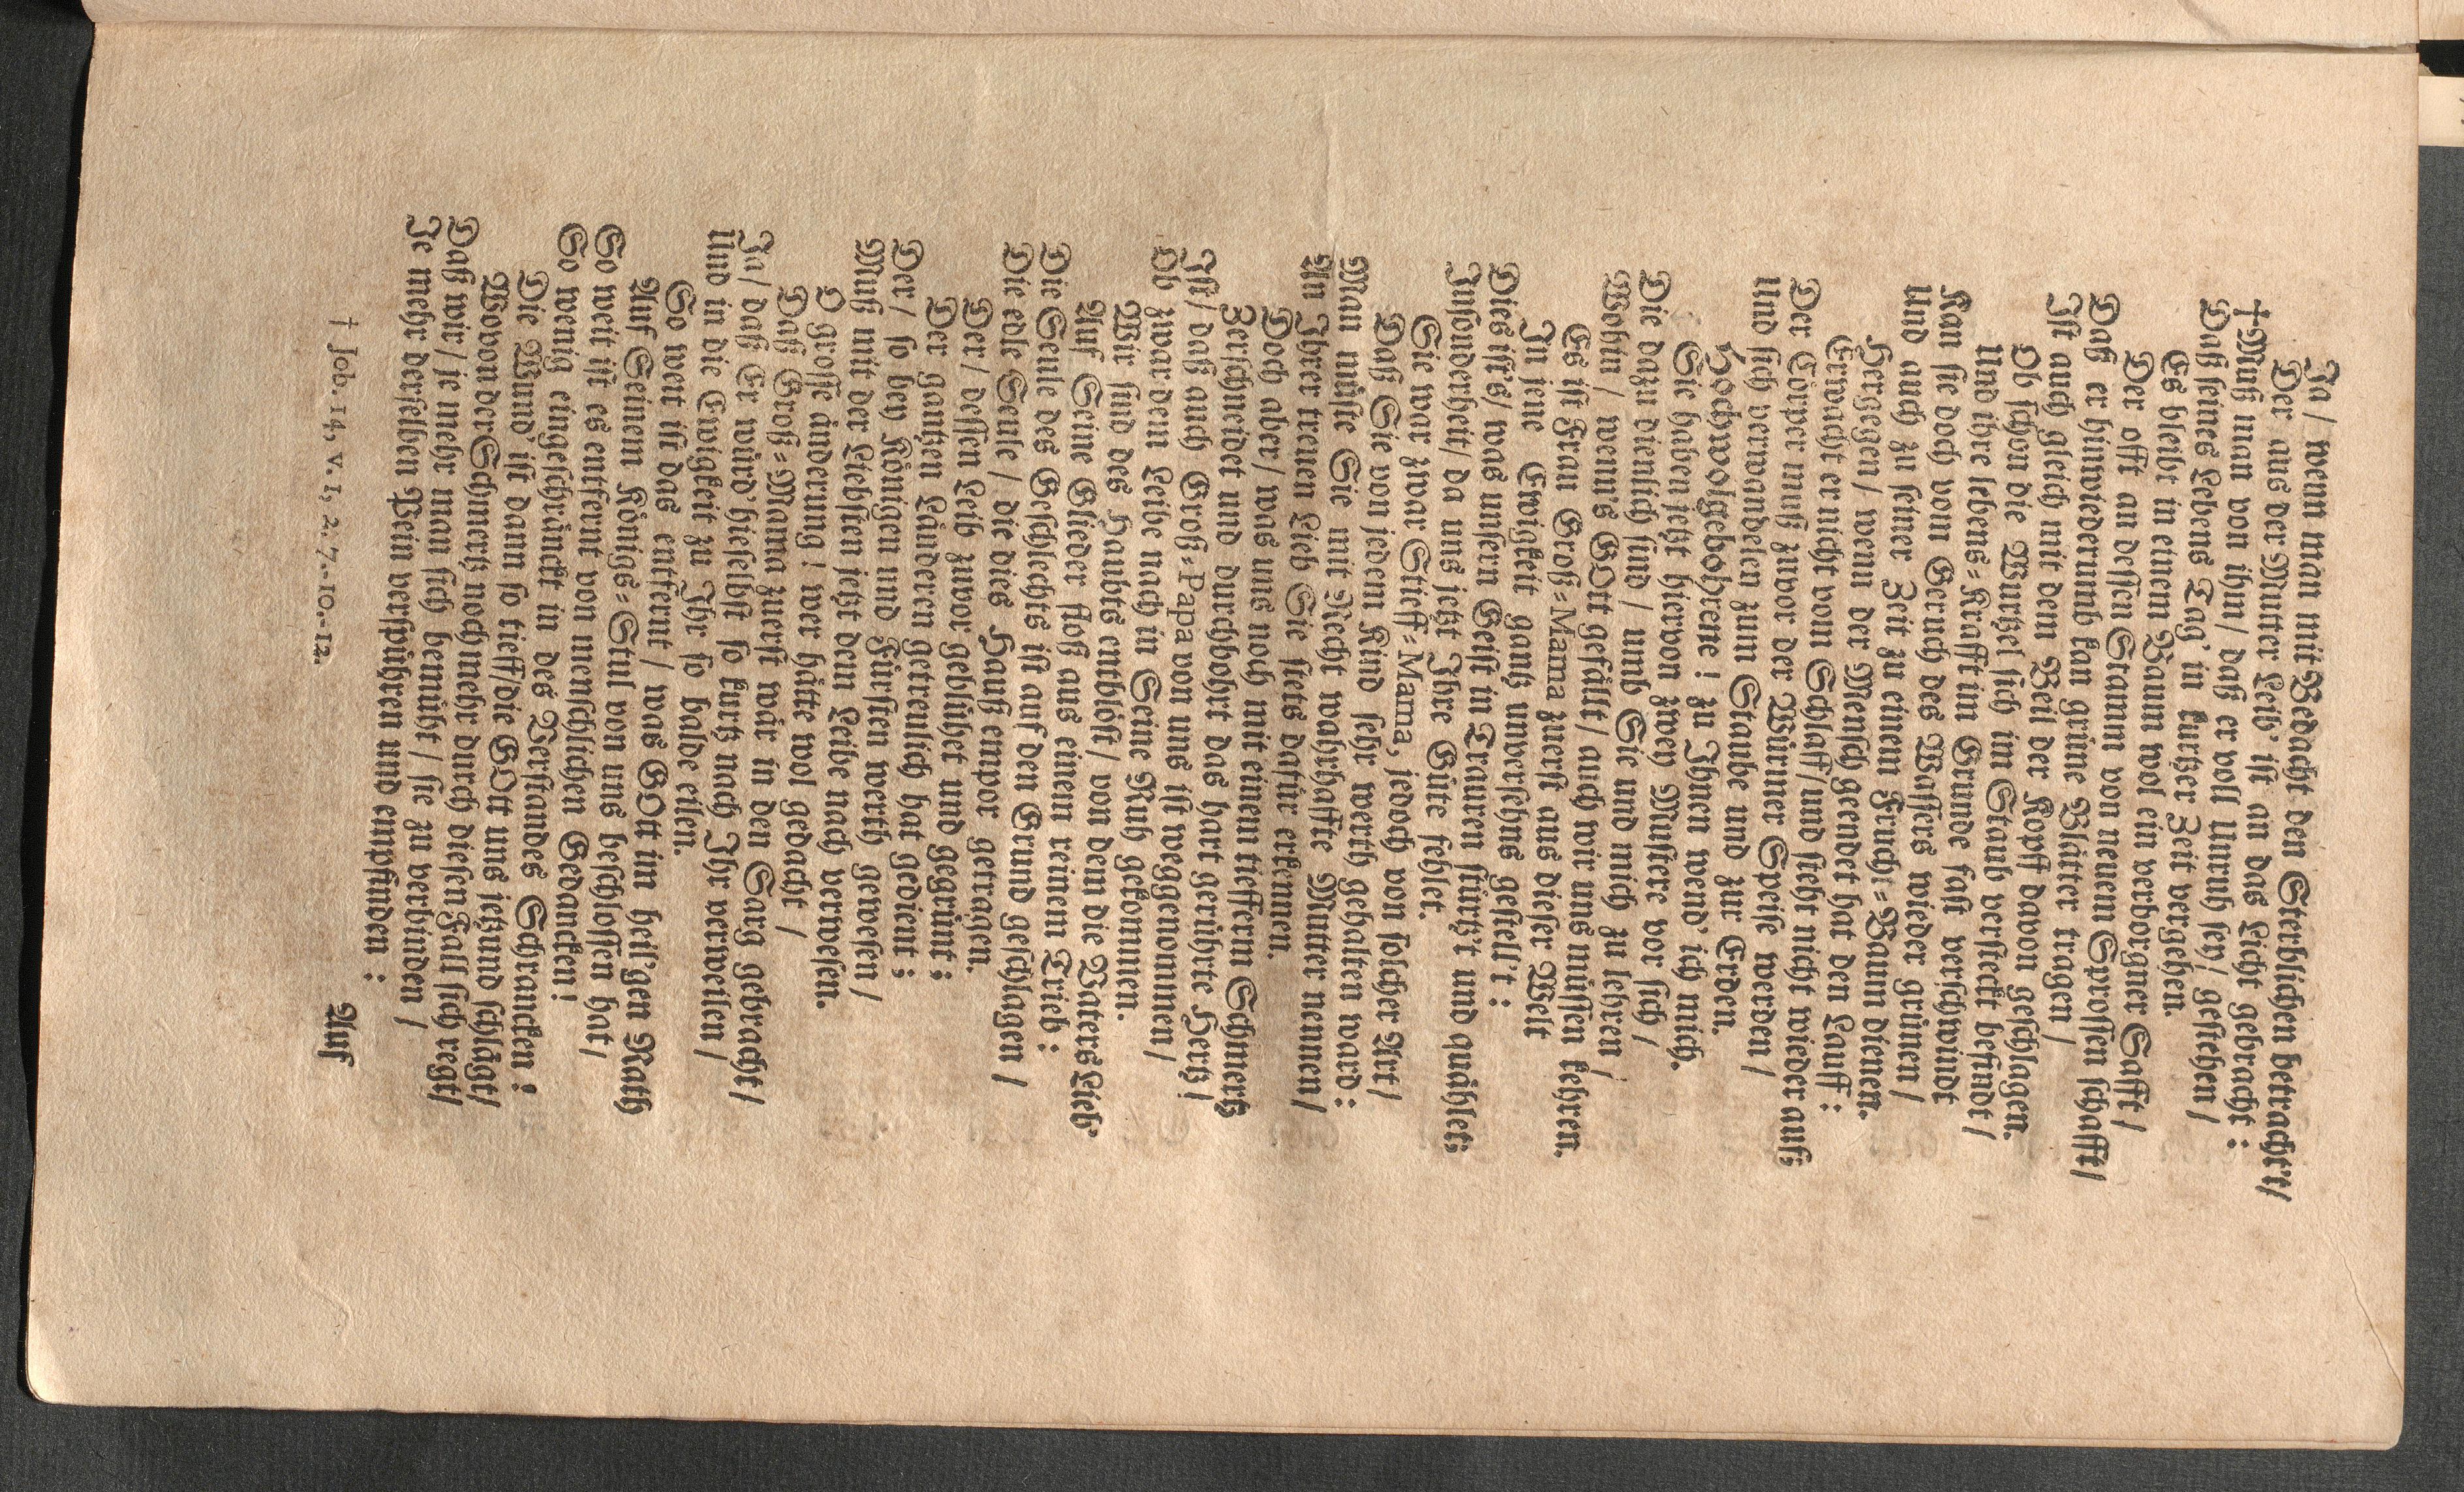 Ja / wenn man mit Bedacht den Sterblichen betrachtet/
Der aus der Mutter Leib' ist an das Licht gebracht :
†Muß man von ihm / daß er voll Unruh sey / gestehen /
Daß seines Lebens Tag' in kurtzer Zeit vergehen.
Es bleibt in einem Baum wol ein verborgner Safft /
Der offt an dessen Stamm von neuem Sprossen schafft/
Daß er hinwiederumb kan grüne Blätter tragen /
Ist auch gleich mit dem Beil der Kopff davon geschlagen.
Ob schon die Wurtzel sich im Staub versteckt befindt /
Und ihre lebens=Krafft im Grunde fast verschwindt
Kan sie doch vom Geruch des Wassers wieder grünen /
Und auch zu seiner Zeit zu einem Frucht=Baum dienen.
Hergegen / wenn der Mensch geendet hat den Lauff :
Erwacht er nicht vom Schlaff/und steht nicht wieder auff;
Der Cörper muß zuvor der Würmer Speise werden /
Und sich verwandelen zum Staube und zur Erden.
Hochwolgebohrene ! zu Ihnen wend' ich mich.
Sie haben jetzt hiervon zwey Mustere vor sich /
Die dazu dienlich sind / umb Sie und mich zu lehren /
Wohin / wenn's GOtt gefällt / auch wir uns müssen kehren.
Es ist Frau Groß=Mama zuerst aus dieser Welt
In jene Ewigkeit gantz unversehns gestell't :
Dies ist's/ was unsern Geist in Trauren stürtz't und quählet;
Insonderheit/ da uns jetzt Ihre Güte fehlet.
Sie war zwar Stieff=Mama, jedoch von solcher Art /
Daß Sie von jedem Kind sehr werth gehalten ward :
Man muste Sie mit Recht warhaffte Mutter nennen /
An Ihrer treuen Lieb Sie stets dafür erkennen.
Doch aber / was uns noch mit einem tieffern Schmertz
Zerschneidet und durchbohrt das hart gerührte Hertz !
Ist / daß auch Groß=Papa von uns ist weggenommen /
Ob zwar dem Leibe nach in Seine Ruh gekommen.
Wir sind des Haubts entblöst / von dem die Vaters Lieb'
Auf Seine Glieder floß aus einem reinen Trieb :
Die Seule des Geschlechts ist auf den Grund geschlagen /
Die edle Seule / die dies Hauß empor getragen.
Der / dessen Leib zuvor geblühet und gegrünt :
Der gantzen Länderen getreulich hat gedient :
Der / so bey Königen und Fürsten werth gewesen /
Muß mit der Liebsten jetzt dem Leibe nach verwesen.
O grosse änderung ! wer hätte wol gedacht /
Daß Groß=Mama zuerst wär in den Sarg gebracht /
Ja / daß Er würd' hieselbst so kurtz nach Ihr verweilen /
Und in die Ewigkeit zu Ihr so balde eilen.
So weit ist das entfernt / was GOtt im heil'gen Rath
Auf Seinem Königs=Stul von uns beschlossen hat /
So weit ist es entfernt von menschlichen Gedancken !
So wenig eingeschränckt in des Verstandes Schrancken :
Die Wund' ist dann so tieff/die GOtt uns jetzund schlägt/
Wovon der Schmertz noch mehr durch diesen Fall sich regt/
Daß wir / je mehr man sich bemüht / sie zu verbinden /
Je mehr derselben Pein verspühren und empfinden :
Auf
† Job. 14, v. 1, 2. 7.-10.-12.